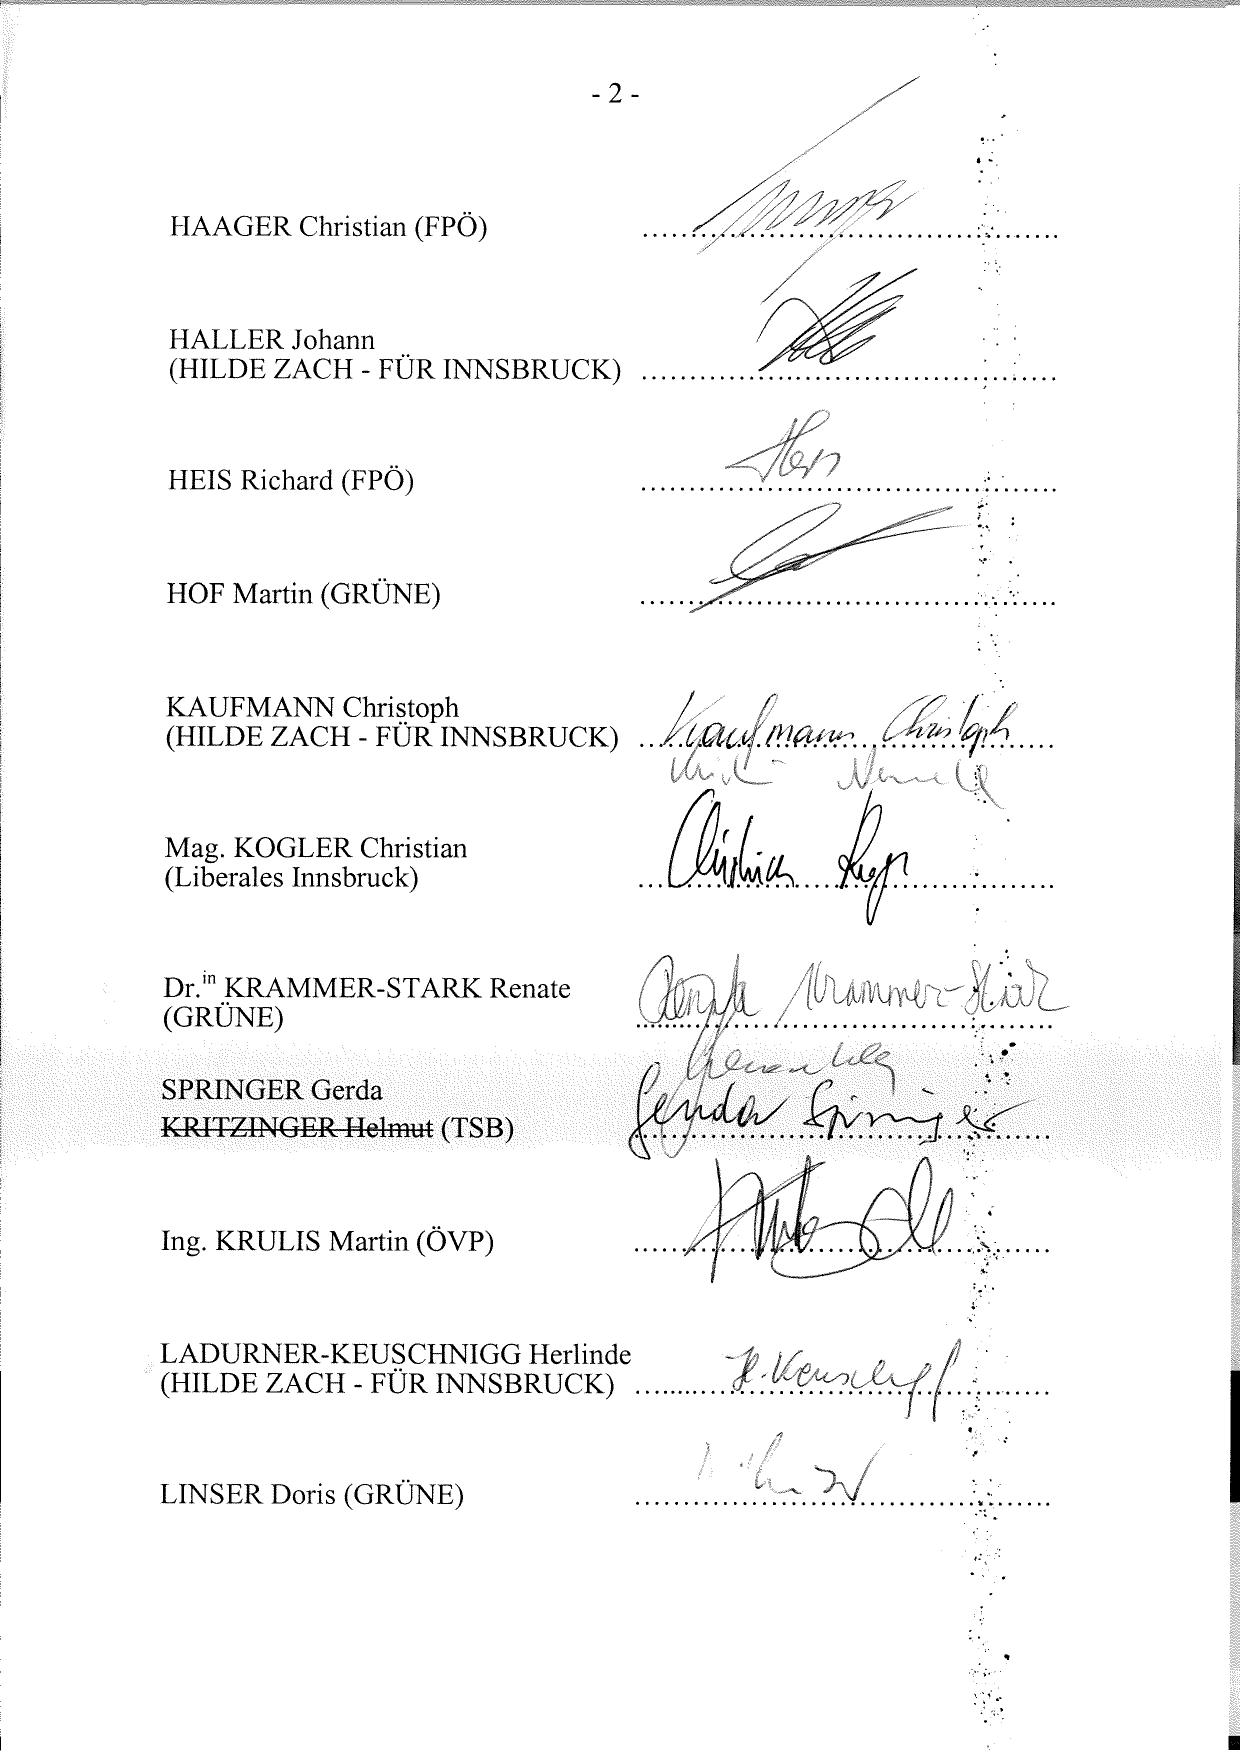 - 2 -
HAAGER Christian (FPÖ)
HALLER Johann
(HILDE ZACH - FÜR INNSBRUCK)
HEIS Richard (FPÖ)
HOF Martin (GRÜNE)
KAUFMANN Christoph
(HILDE ZACH - FÜR INNSBRUCK) Kaufmann Christoph
Mag. KOGLER Christian
(Liberales Innsbruck) Christian
Dr.in KRAMMER-STARK Renate
(GRÜNE) Renate Krammer-Stark
SPRINGER Gerda
KRITZINGER Helmut (TSB) Gerda Springer
Ing. KRULIS Martin (ÖVP)
LADURNER-KEUSCHNIGG Herlinde
(HILDE ZACH - FÜR INNSBRUCK) H. Keuschnigg
LINSER Doris (GRÜNE)